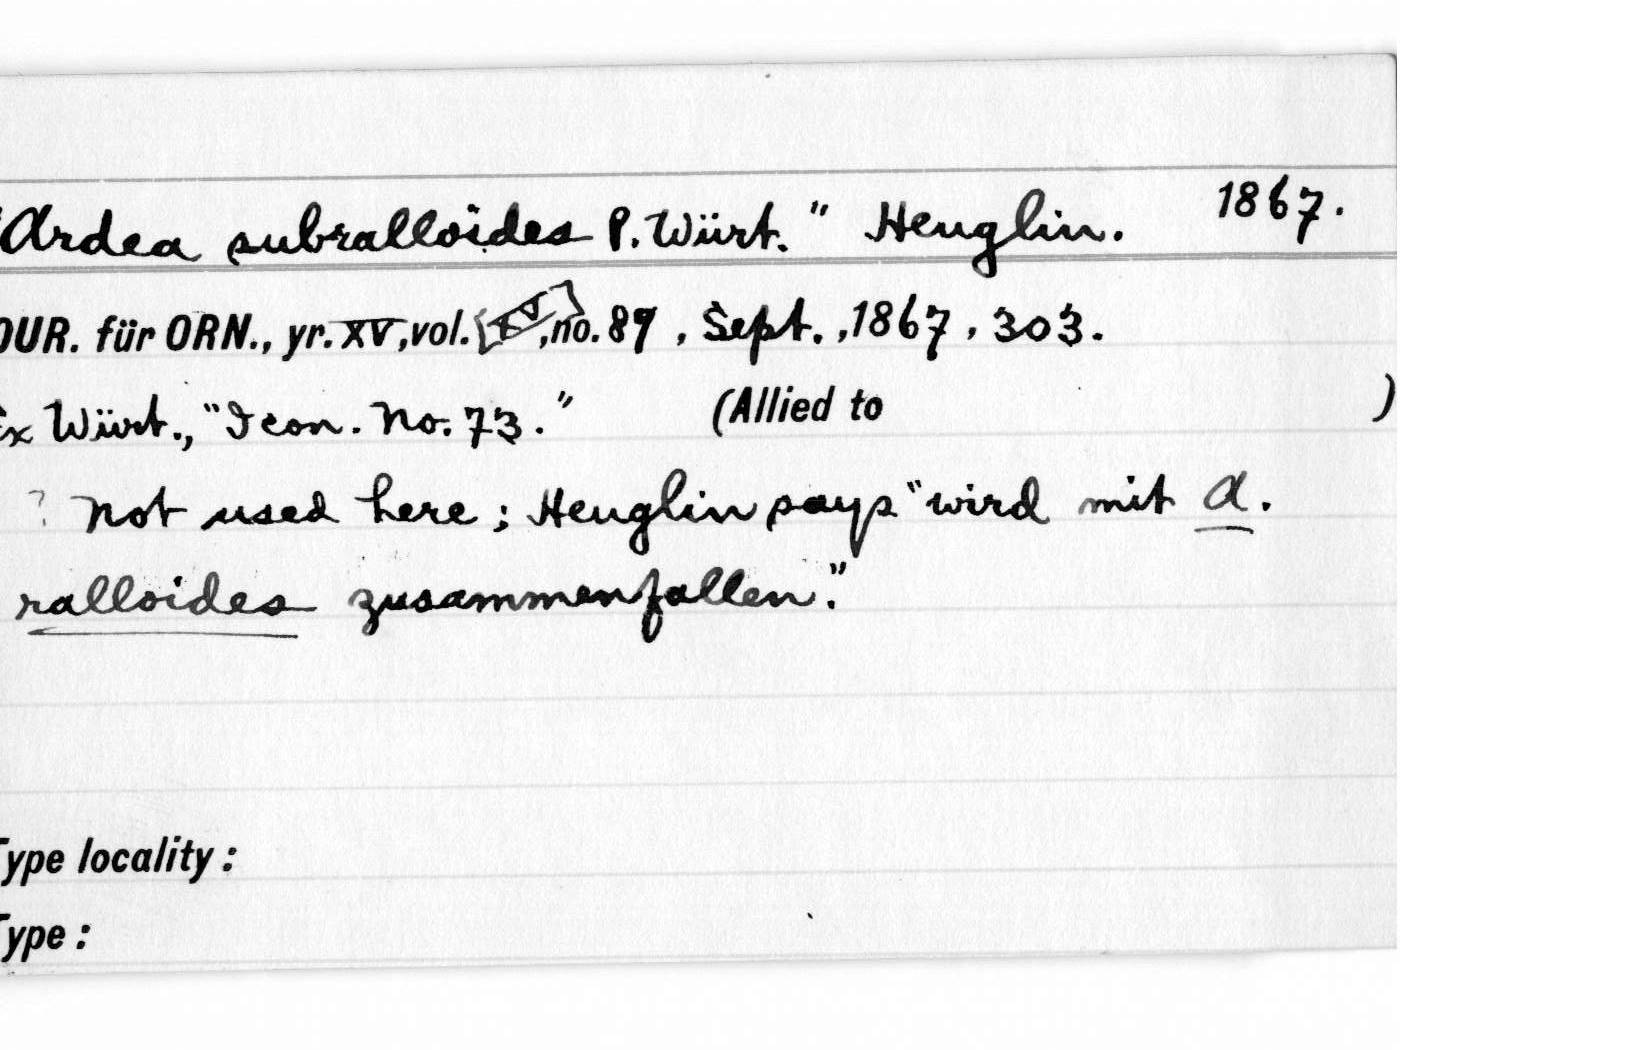 "Ardea subralloides P. Würt." Henglin. 1867.
OUR. für ORN., yr. XV, vol. [XV], no. 89, Sept., 1867, 303.
Ex Würt., "Icon. No. 73." (Allied to )
? Not used here; Henglin says "wird mit A.
ralloides zusammenfallen."
Type locality:
Type: